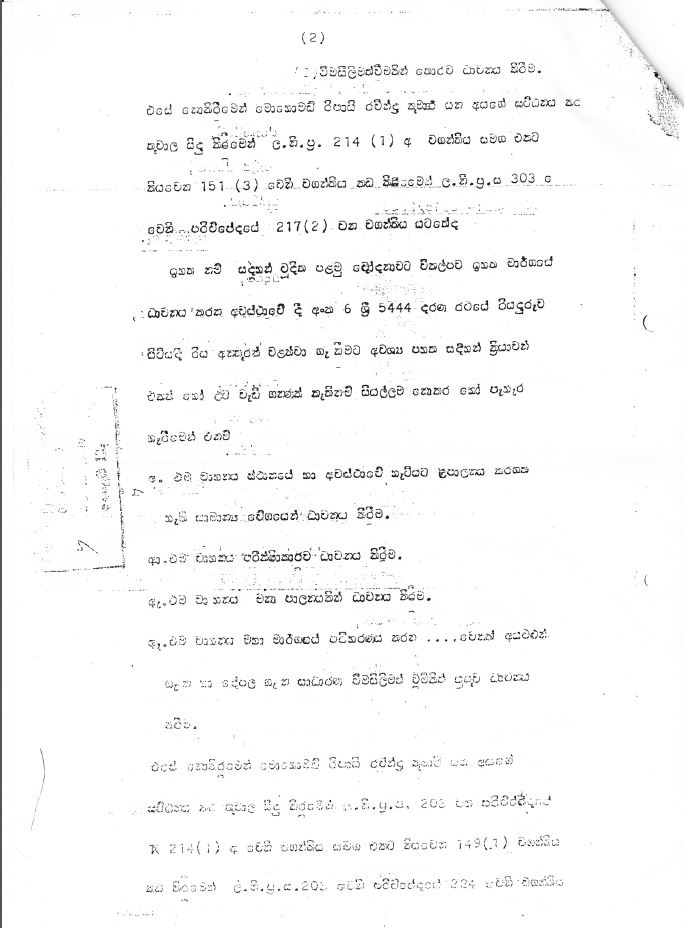 (2)
විමසිලිමත්වීමකින් තොරව ධාවනය කිරීම.
එසේ නොකිරීමෙන් මොහොමඩ් රිපායි රවින්ද්‍ර කුමාර් යන අයගේ සට්ඨනය කර
තුවාල සිදු කිරීමෙන් ල.නි.ප්‍ර. 214 (1) අ වගන්තිය සමග එකට
කියවෙන 151 (3) වෙනි වගන්තිය කඩ කිරීමෙන් ල.නි.ප්‍ර.ස 303
වෙනි පරිච්ඡේදයේ 217(2) වන වගන්තිය යටතේද
ඉහත නම් සඳහන් චූදිත පළමු චෝදනාවට විකල්පව ඉහත මාර්ගයේ
ධාවනය කරන අවස්ථාවේ දී අංක 6 ශ්‍රී 5444 දරණ රථයේ රියදුරුව
සිටියදී රිය අනතුරක් වළක්වා ගැනීමට අවශ්‍ය පහත සඳහන් ක්‍රියාවන්
එකක් හෝ ඊට වැඩි ගණනක් නැතිනම් සියල්ලම නොකර හෝ පැහැර
හැරීමෙන් එනම්
අ. එම වාහනය ස්ථානයේ හා අවස්ථාවේ හැටියට පාලනය කරගත
හැකි සාමාන්‍ය වේගයෙන් ධාවනය කිරීම.
ආ.එම වාහනය පරික්ෂාකාරව ධාවනය කිරීම.
ඇ.එම වාහනය මනා පාලනයකින් ධාවනය කිරීම.
ඈ.එම වාහනය මහා මාර්ගයේ පරිහරණය කරන ....වෙනත් අයවළුන්
ගැන හා දේපල ගැන සාධාරණ විමසිලිමත් වීමකින් යුතුව ධාවනය
කිරීම.
එසේ නොකිරීමෙන් මොහොමඩ් රිපායි රවින්ද්‍ර කුමාර් යන අයගේ
සට්ඨනය කර තුවාල සිදු කිරීමෙන් ල.නි.ප්‍ර.ස. 203 වන පරිච්ඡේදයේ
214(1) අ වෙනි වගන්තිය සමග එකට කියවෙන 149(1) වගන්තිය
කඩ කිරීමෙන් ල.නි.ප්‍ර.ස.203 වෙනි පරිච්ඡේදයේ 224 වෙනි වගන්තිය